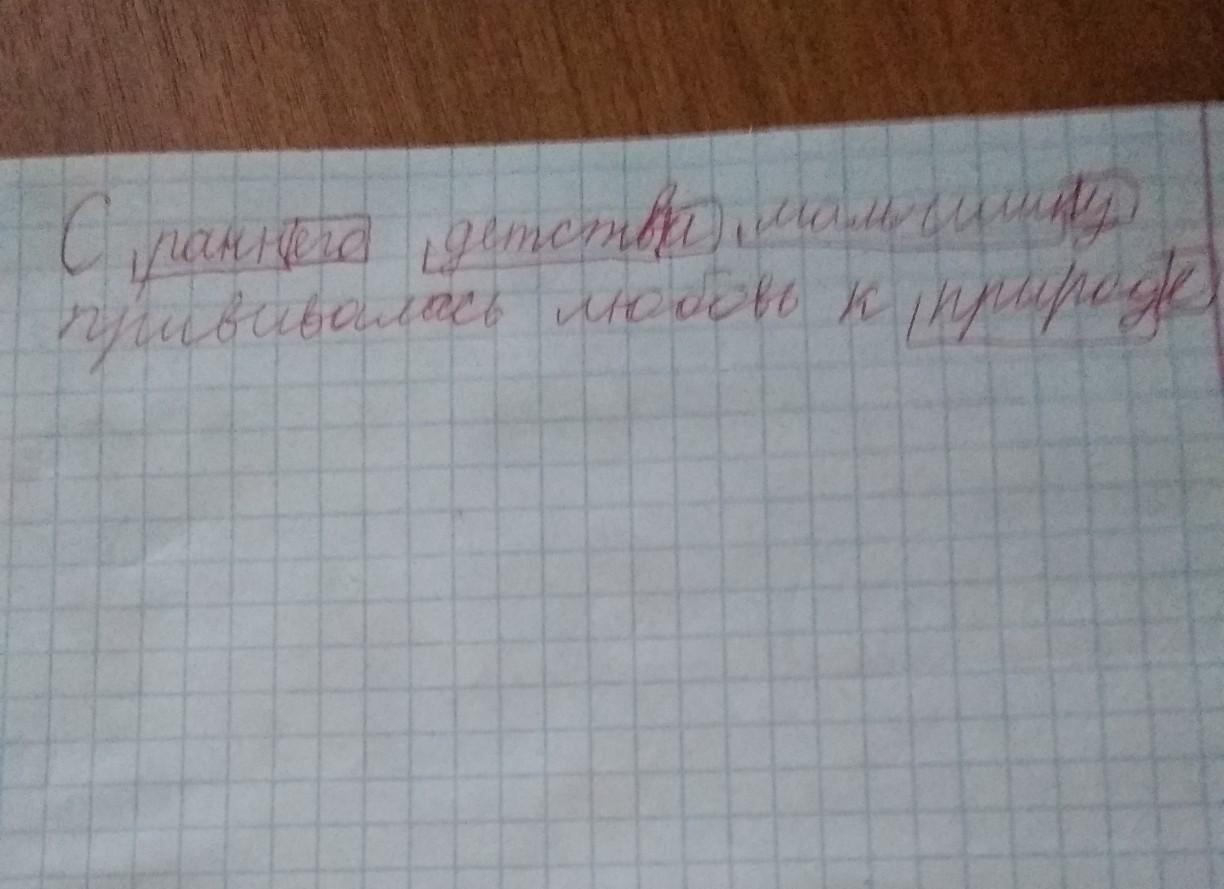 С раннего детства мальчишку
прививалась любовь к природе